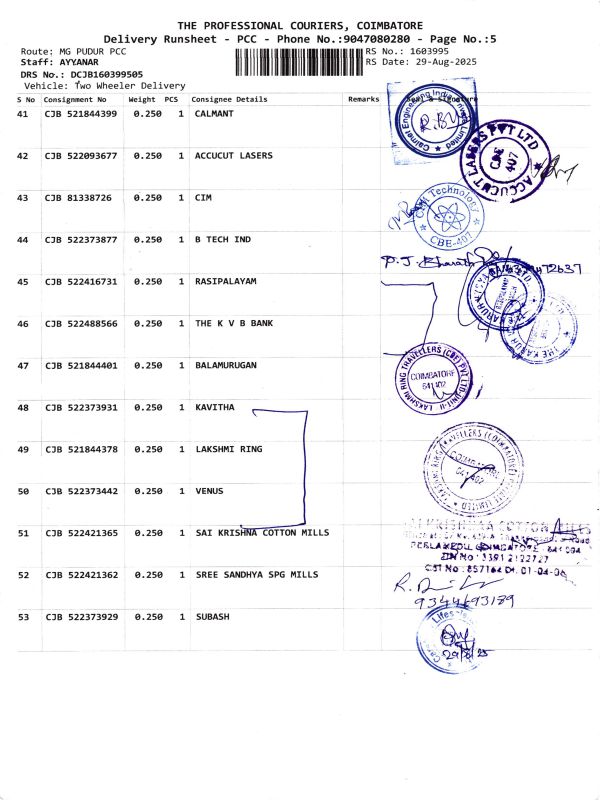 THE PROFESSIONAL COURIERS, COIMBATORE
Delivery Runsheet - PCC - Phone No.:9047080280 - Page No.:5
Route: MG PUDUR PCC RS No.: 1603995
Staff: AYYANAR RS Date: 29-Aug-2025
DRS No.: DCJB160399505
Vehicle: Two Wheeler Delivery
S No Consignment No Weight PCS Consignee Details Remarks Seal & Signature
41 CJB 521844399 0.250 1 CALMANT
42 CJB 522093677 0.250 1 ACCUCUT LASERS
ACCUCUT LASERS PVT LTD
CBE
407
43 CJB 81338726 0.250 1 CIM
CIM Technology
CBE-407
44 CJB 522373877 0.250 1 B TECH IND
P.J. Bharath
45 CJB 522416731 0.250 1 RASIPALAYAM
46 CJB 522488566 0.250 1 THE K V B BANK
47 CJB 521844401 0.250 1 BALAMURUGAN
LAKSHMI RING TRAVELLERS (CBE) PVT LTD UNIT-II
COIMBATORE
641 402
48 CJB 522373931 0.250 1 KAVITHA
49 CJB 521844378 0.250 1 LAKSHMI RING
COIMBATORE
641 402
50 CJB 522373442 0.250 1 VENUS
51 CJB 522421365 0.250 1 SAI KRISHNA COTTON MILLS
SAI KRISHNAA COTTON MILLS
52 CJB 522421362 0.250 1 SREE SANDHYA SPG MILLS
9344693189
53 CJB 522373929 0.250 1 SUBASH
29/8/25